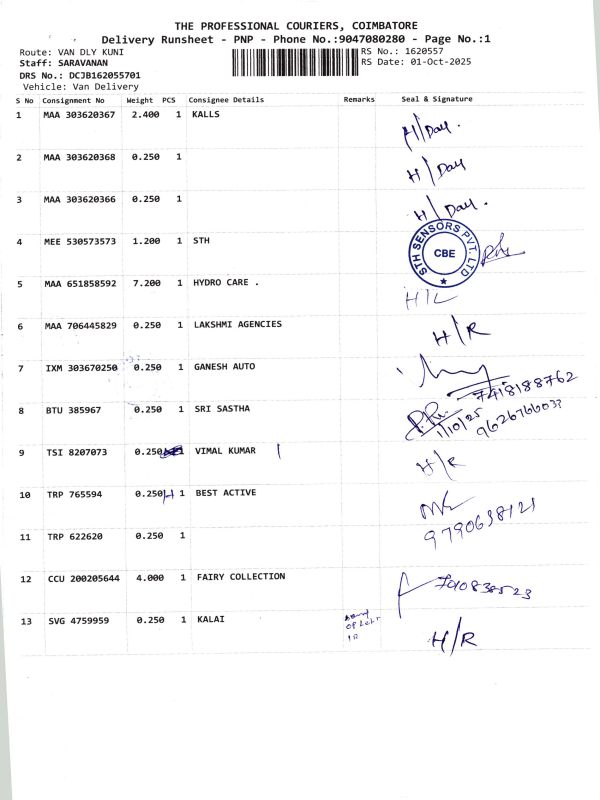 THE PROFESSIONAL COURIERS, COIMBATORE
Delivery Runsheet - PNP - Phone No.:9047080280 - Page No.:1
Route: VAN DLY KUNI
RS No.: 1620557
Staff: SARAVANAN
RS Date: 01-Oct-2025
DRS No.: DCJB162055701
Vehicle: Van Delivery
S No Consignment No Weight PCS Consignee Details Remarks Seal & Signature
1 MAA 303620367 2.400 1 KALLS H/Day.
2 MAA 303620368 0.250 1 H/Day
3 MAA 303620366 0.250 1 H/Day.
4 MEE 530573573 1.200 1 STH STH SENSORS PVT. LTD ★ CBE
5 MAA 651858592 7.200 1 HYDRO CARE . H/L
6 MAA 706445829 0.250 1 LAKSHMI AGENCIES H/R
7 IXM 303670250 0.250 1 GANESH AUTO 7418188762
8 BTU 385967 0.250 1 SRI SASTHA 1/10/25
9 TSI 8207073 0.250 VIMAL KUMAR H/R
10 TRP 765594 0.250 1 BEST ACTIVE
9790638121
11 TRP 622620 0.250 1
12 CCU 200205644 4.000 1 FAIRY COLLECTION
13 SVG 4759959 0.250 1 KALAI H/R